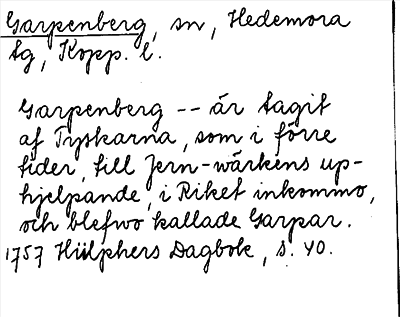 Garpenberg, sn, Hedemora
tg, Kopp. l.
Garpenberg -- är tagit
af Tyskarna, som i förre
tider, till Jern-wärkens up-
hjelpande, i Riket inkommo,
och blefwo kallade Garpar.
1757 Hülphers Dagbok, s. 40.